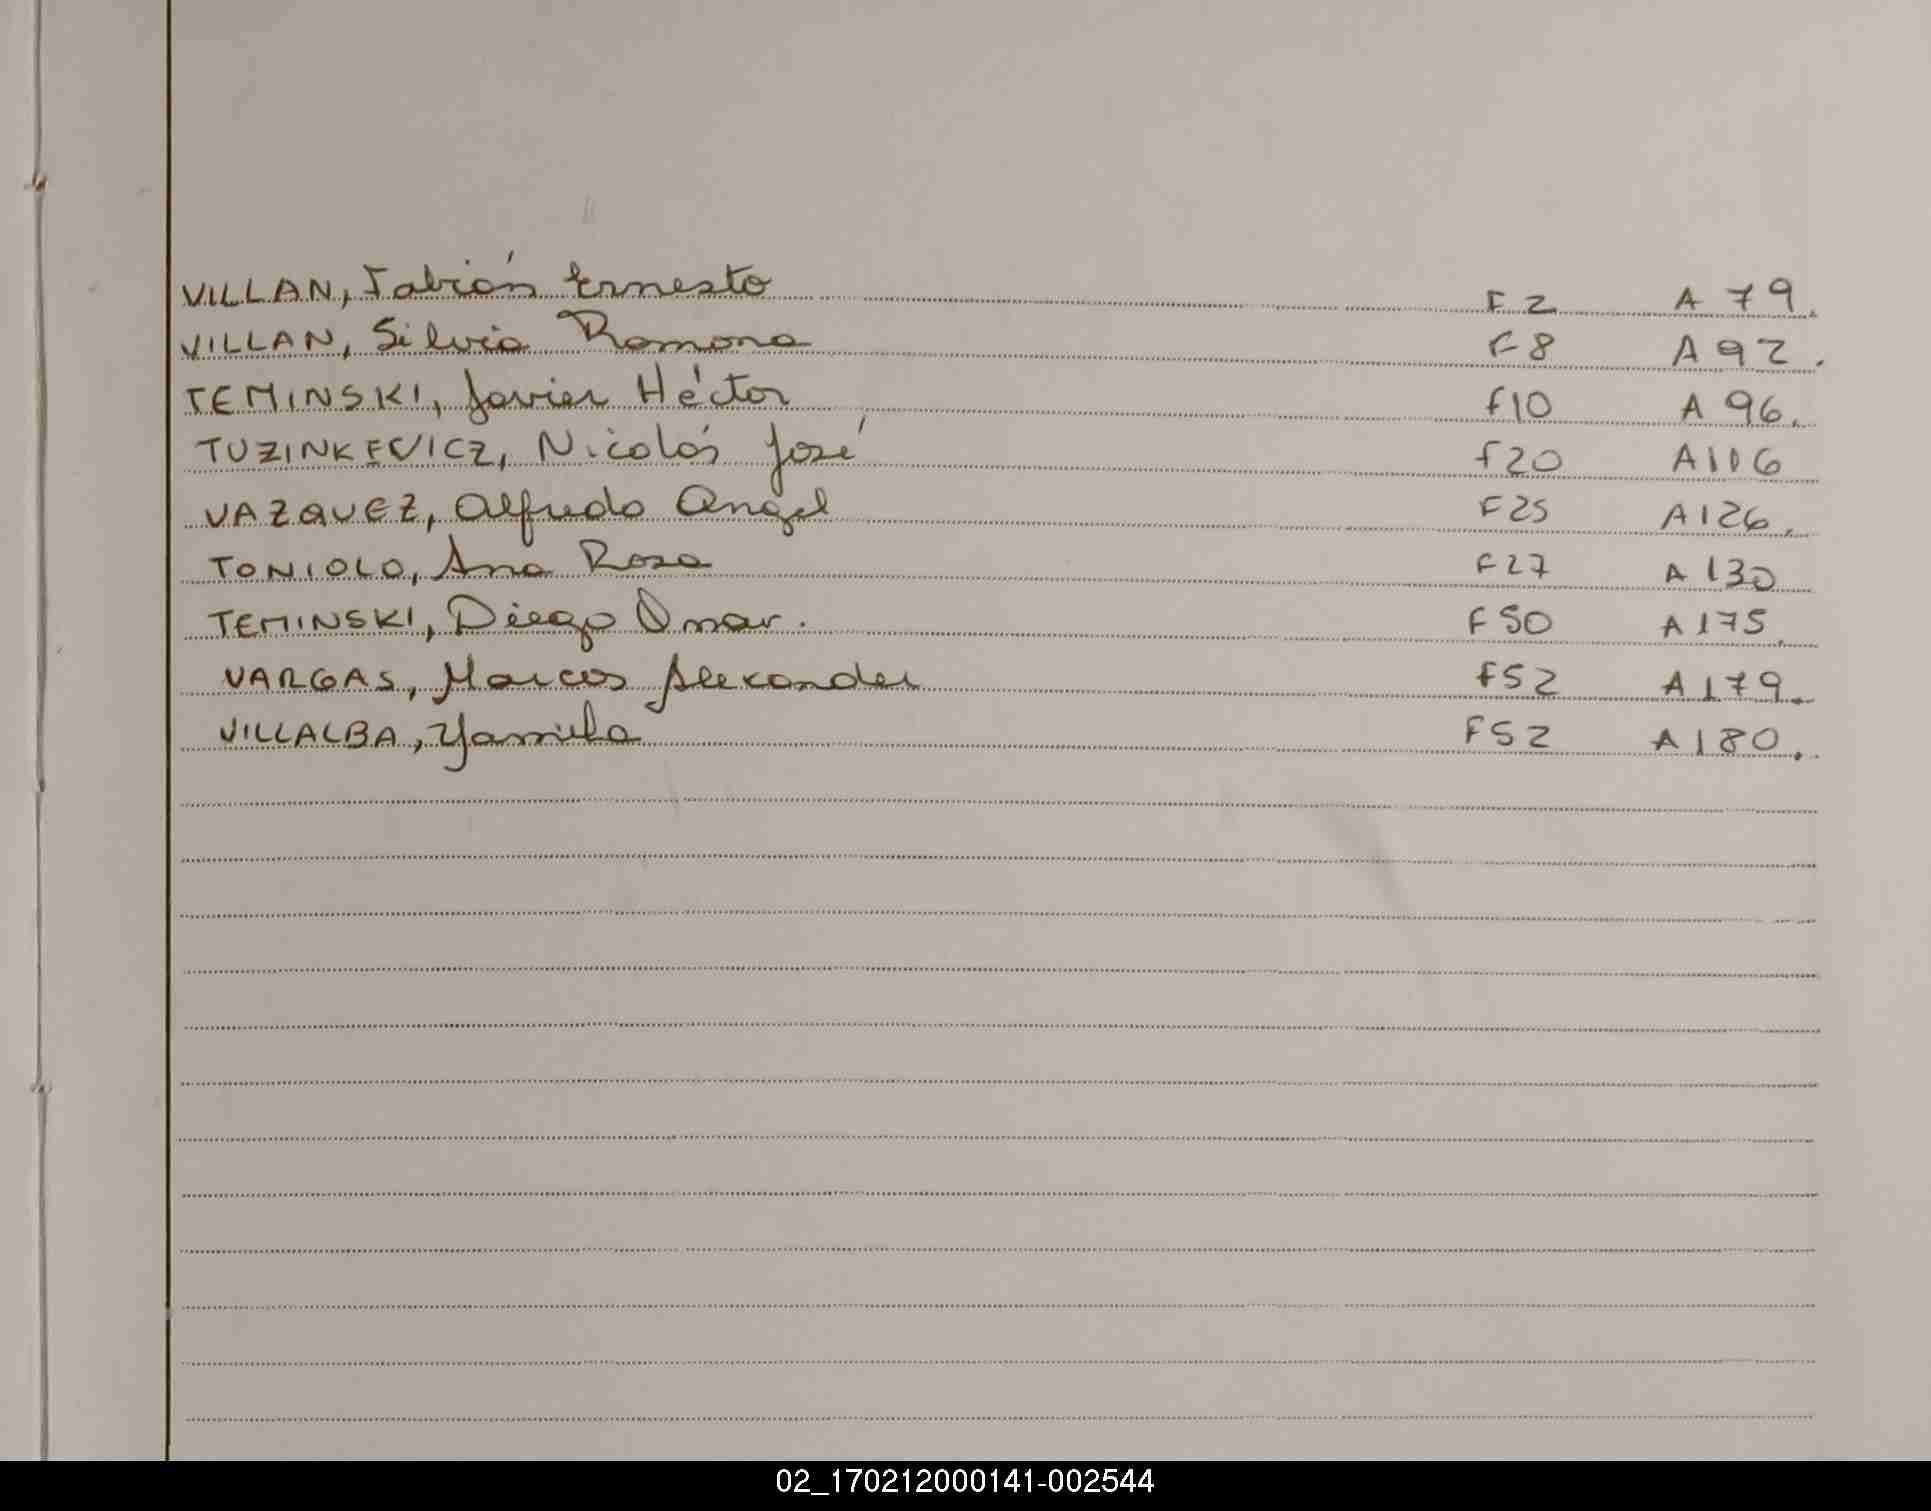 VILLAN, Fabián Ernesto F 2 A 79.
VILLAN, Silvia Ramona F 8 A 92.
TEMINSKI, Javier Héctor f10 A 96.
TUZINKEVICZ, Nicolás José f20 A116
VAZQUEZ, Alfredo Angel F25 A126.
TONIOLO, Ana Rosa F27 A 130
TEMINSKI, Diego Omar. F 50 A175.
VARGAS, Marcos Alexander f52 A179.
VILLALBA, Yamila F52 A180.
02_170212000141-002544